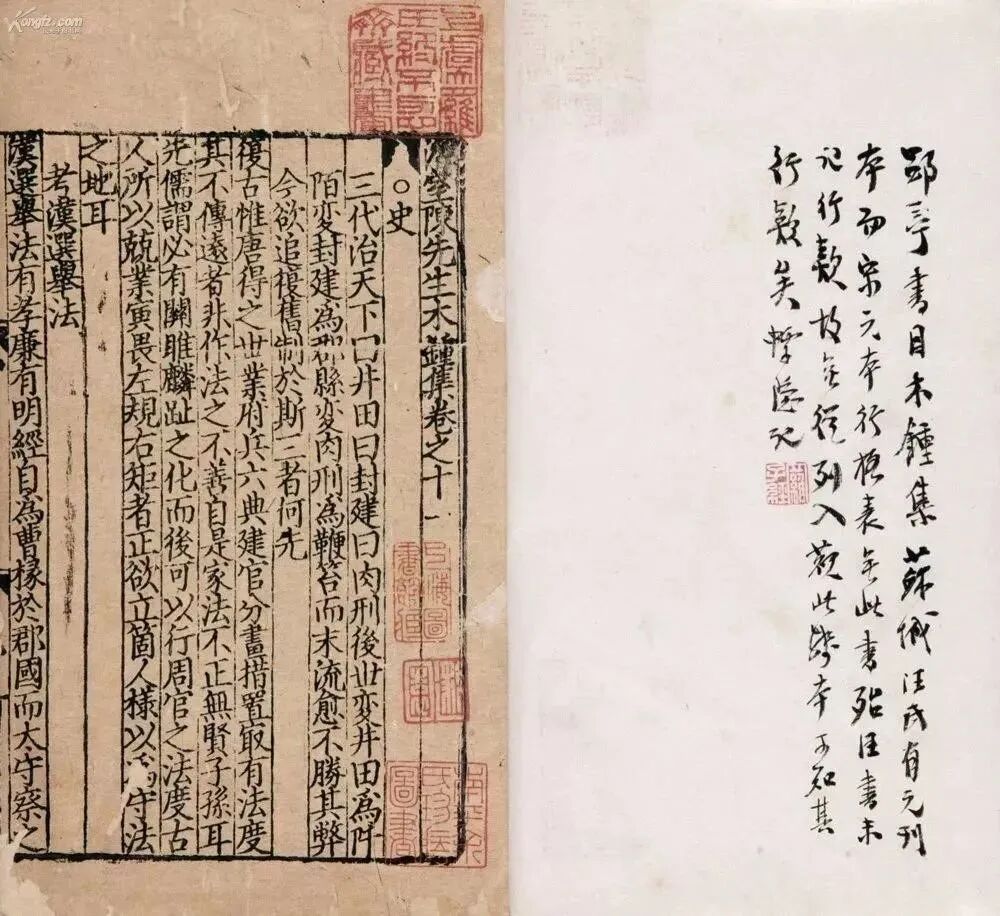 郘亭書目木鍾集蘇城汪氏有元刊
本而宋元本行格表無此書殆汪書未
記行款故無從列入觀此殘本可知其
行款矣 記
室陳先生木鍾集卷之十一
○史
三代治天下曰井田曰封建曰肉刑後世変井田爲阡
陌変封建爲郡縣変肉刑爲鞭笞而末流愈不勝其弊
今欲追復舊制於斯三者何先
復古惟唐得之世業府兵六典建官分畫措置㝡有法度
其不傳遠者非作法之不善自是家法不正無賢子孫耳
先儒謂必有關雎麟趾之化而後可以行周官之法度古
人所以兢業寅畏左規右矩者正欲立箇人樣以爲守法
之地耳
考漢選舉法
漢選舉法有孝廉有明經自爲曹掾於郡國而太守察之
Kongfz.com